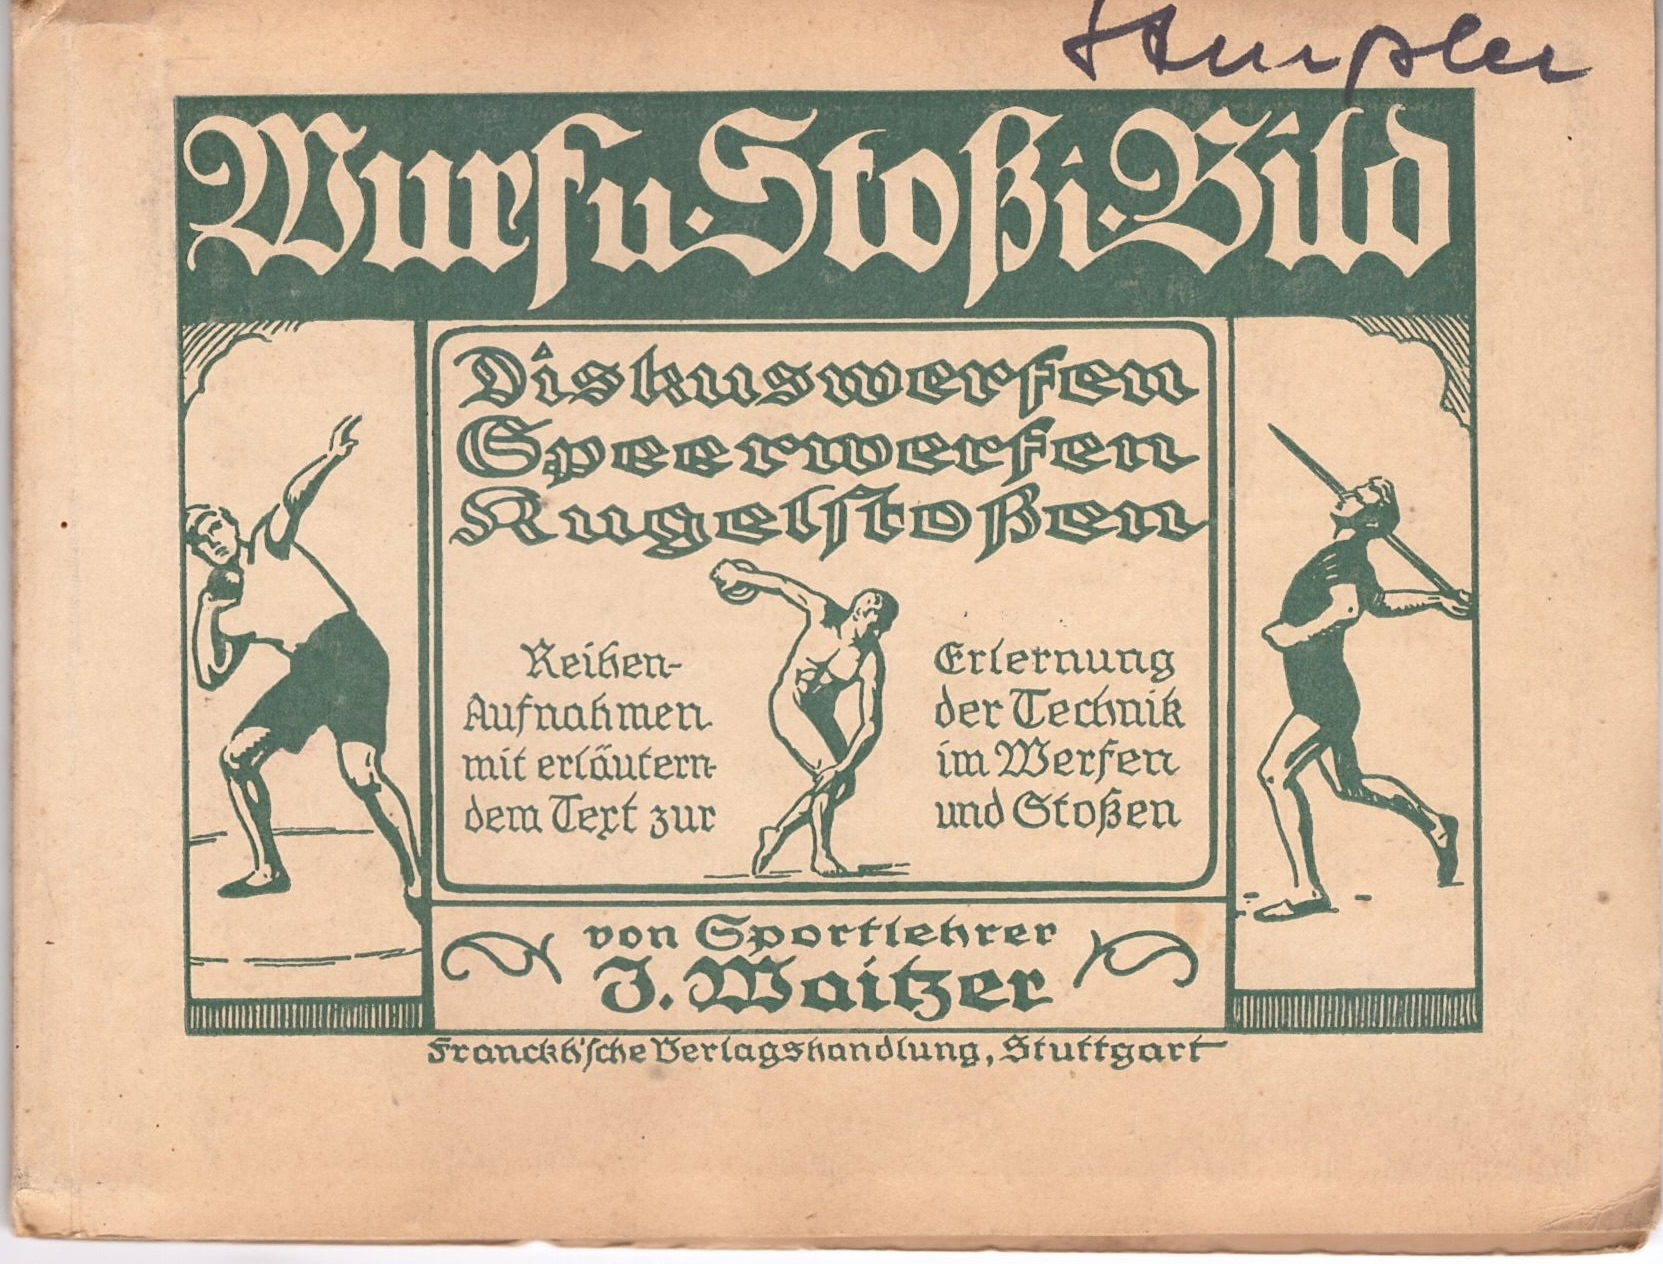 Wurf u. Stoß i. Bild
Diskuswerfen
Speerwerfen
Kugelstoßen
Reihen-
Aufnahmen
mit erläutern-
dem Text zur
Erlernung
der Technik
im Werfen
und Stoßen
von Sportlehrer
J. Waitzer
Franckh'sche Verlagshandlung, Stuttgart